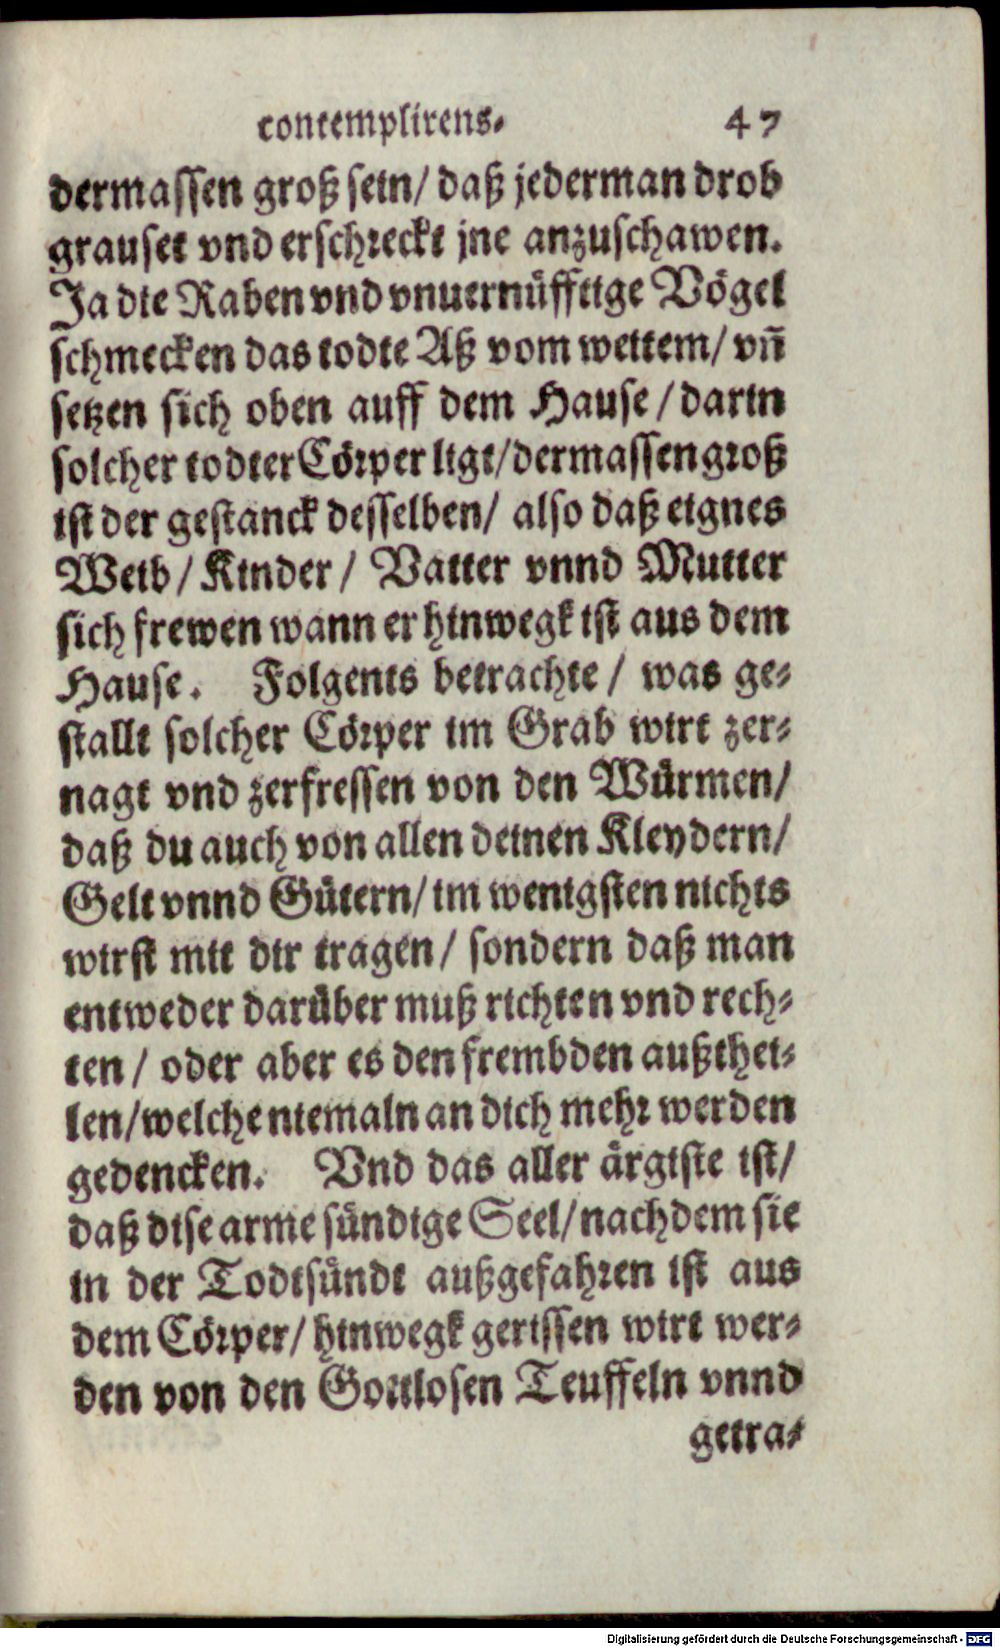 contemplirens. 47
dermassen groß sein/ daß jederman drob
grauset vnd erschreckt jne anzuschawen.
Ja die Raben vnd vnuernüfftige Vögel
schmecken das todte Aß vom weitem/ vñ
setzen sich oben auff dem Hause / darin
solcher todter Cörper ligt/ dermassen groß
ist der gestanck desselben/ also daß eignes
Weib / Kinder / Vatter vnnd Mutter
sich frewen wann er hinwegk ist aus dem
Hause. Folgents betrachte / was ge-
stallt solcher Cörper im Grab wirt zer-
nagt vnd zerfressen von den Würmen/
daß du auch von allen deinen Kleydern/
Gelt vnnd Gütern/ im wenigsten nichts
wirst mit dir tragen/ sondern daß man
entweder darüber muß richten vnd rech-
ten / oder aber es den frembden außthei-
len/ welche niemaln an dich mehr werden
gedencken. Vnd das aller ärgiste ist/
daß dise arme sündige Seel/ nachdem sie
in der Todtsündt außgefahren ist aus
dem Cörper/ hinwegk gerissen wirt wer-
den von den Gottlosen Teuffeln vnnd
getra-
Digitalisierung gefördert durch die Deutsche Forschungsgemeinschaft - DFG